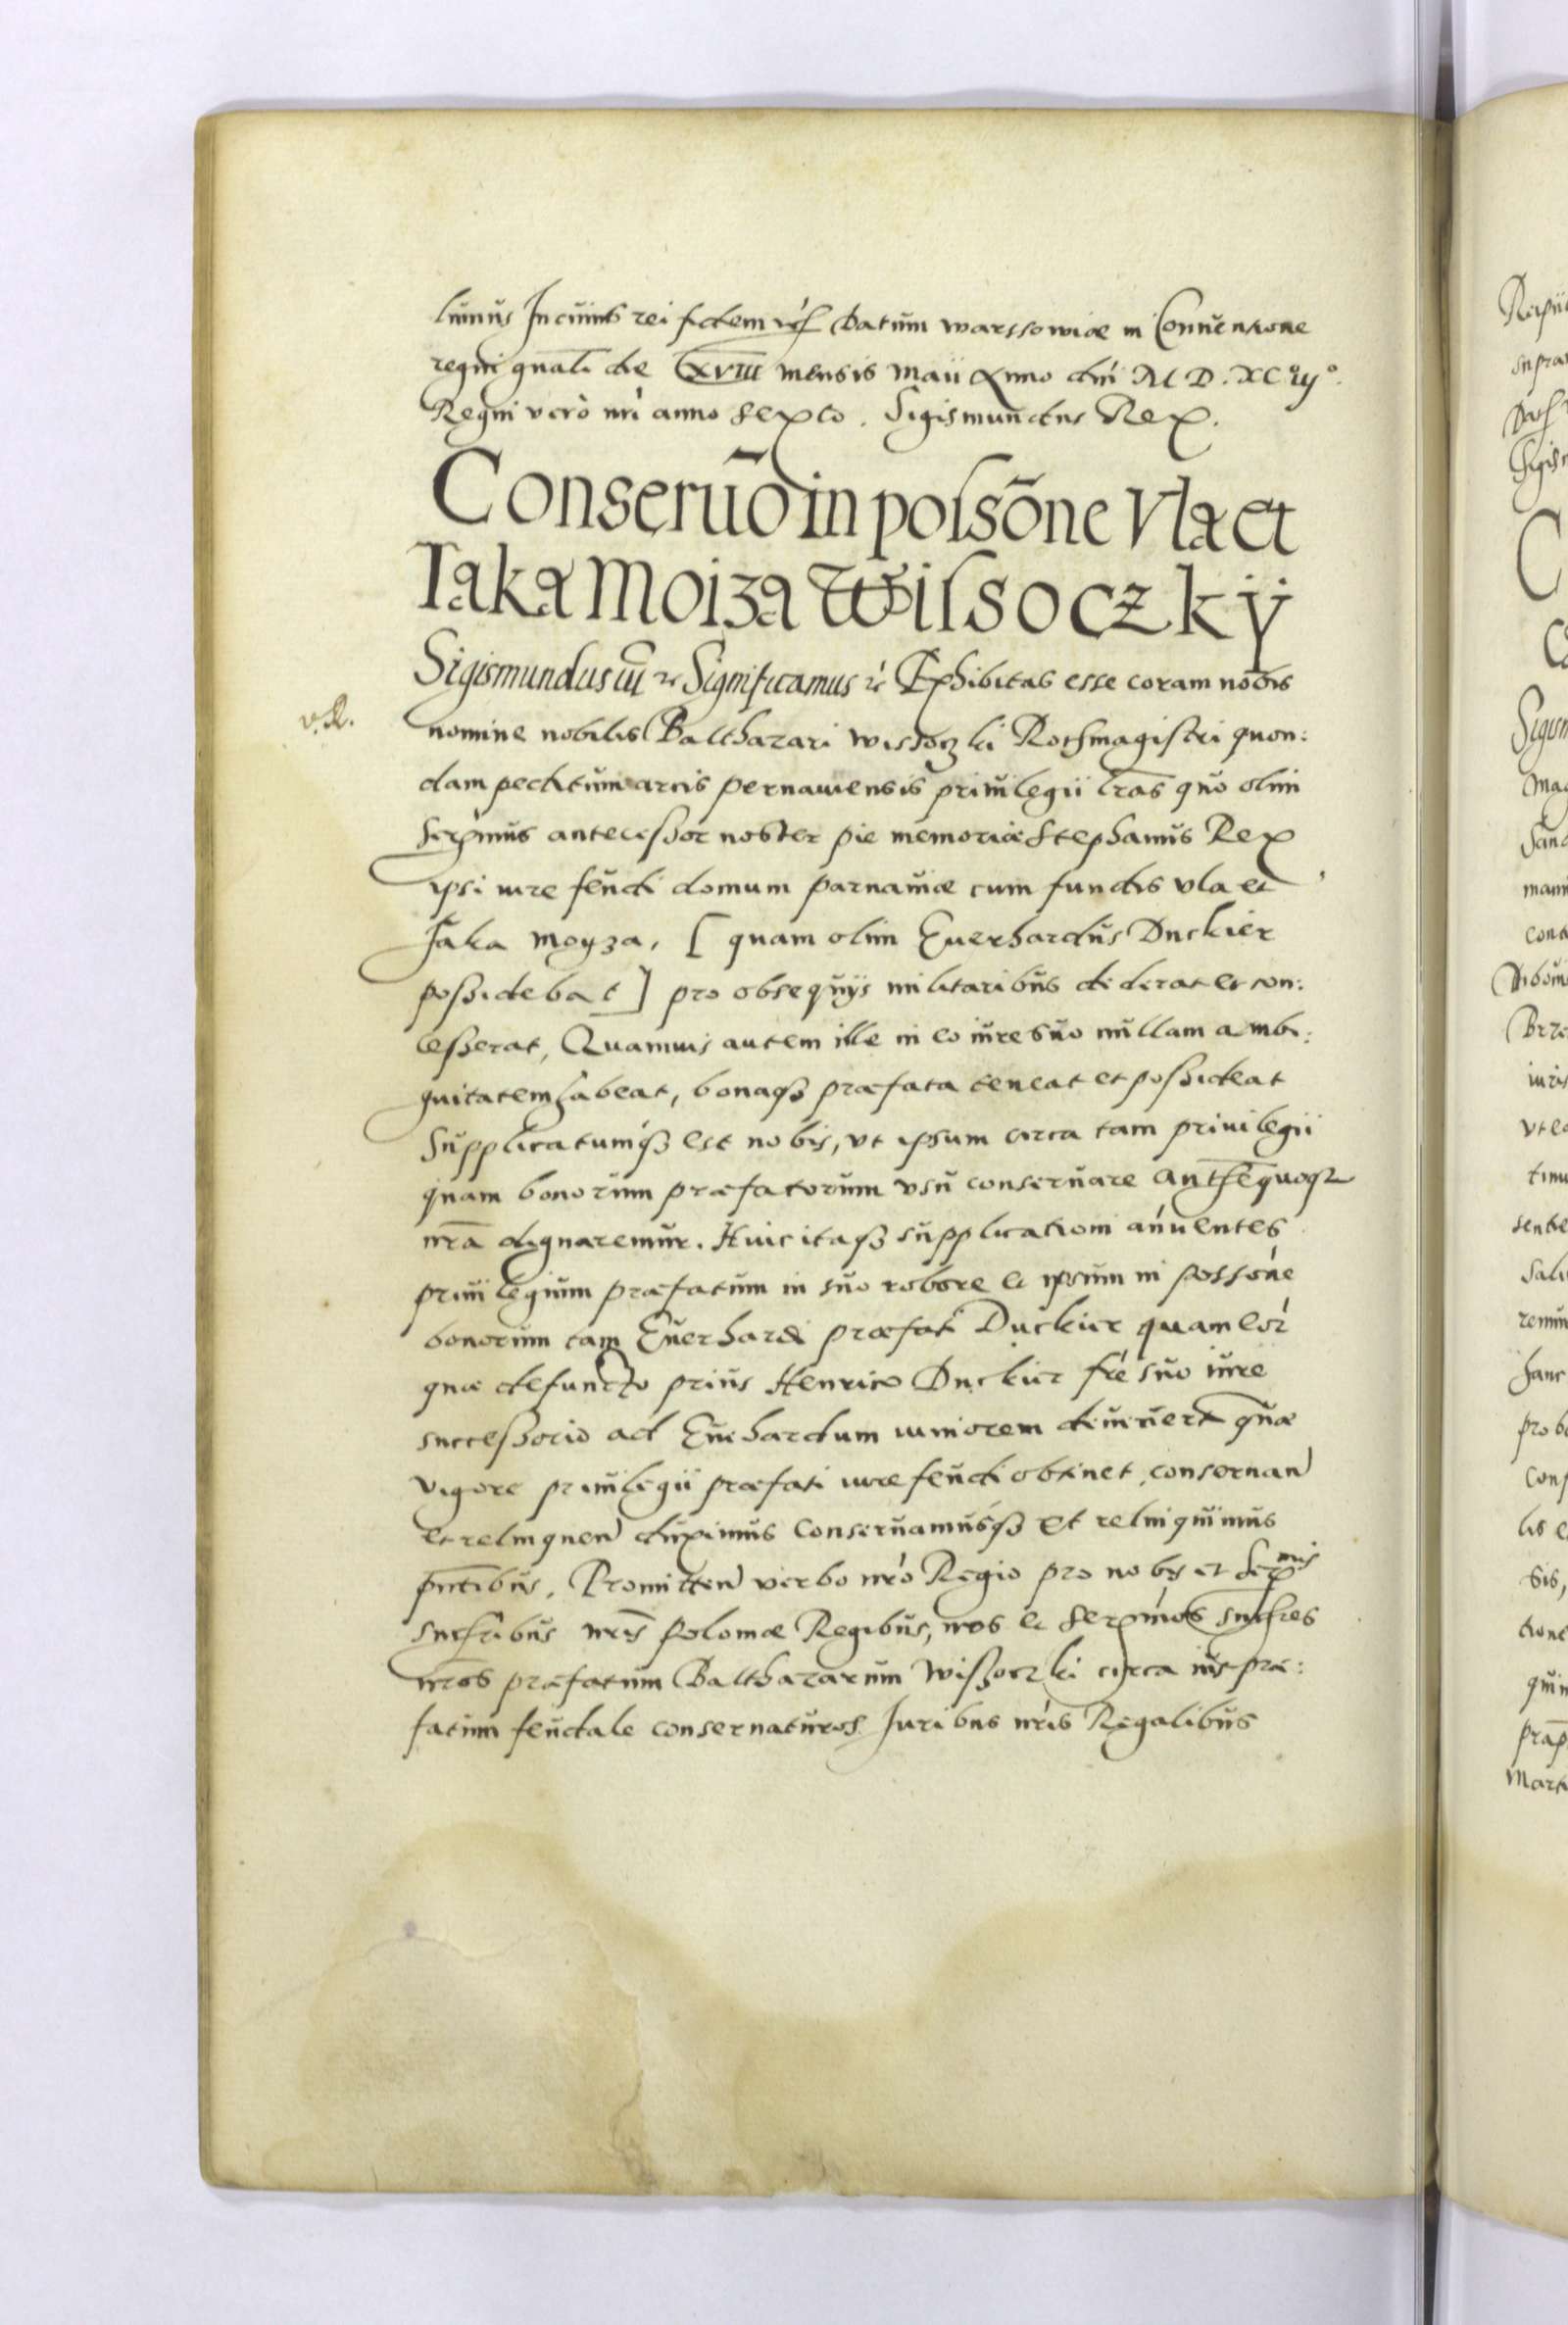 lumus In cuius rei fidem etc Datum warssowiae in Conuentione
regni gnali die XVIII mensis Maii Anno dni M D. XC iij°.
Regni vero nri anno sexto. Sigismundus Rex.
Conseruo in possone Vla et
Iaka Moiza Wissoczkÿ
Sigismundus iii etc Significamus etc Exhibitas esse coram nobis
v. R.
nomine nobilis Balthazari wissoczki Rothmagistri quon:
dam peditum arcis pernauiensis priuilegii lras quo olim
serxmus antecessor noster pie memoriae Stephanus Rex
ipsi iure feudi domum parnauiae cum fundis vla et
Jaka moyza, [ quam olim Euerhardus Duckier
possidebat ] pro obsequijs militaribus dederat et con:
cesserat, Quamuis autem ille in eo iure suo nullam ambi:
guitatem habeat, bonaqз praefata teneat et possideat
Supplicatumqз est nobis, vt ipsum circa tam priuilegii
quam bonorum praefatorum vsu conseruare
nra dignaremur. Huic itaqз supplicationi annuentes
priuilegium praefatum in suo robore et ipsum in possone
bonorum tam Euerhardi praefati Duckier quam eor
quae defuncto prius Henrico Duckier fre suo iure
successorio ad Euerhardum iuniorem deuener quae
vigore priuilegii praefati iure feudi obtinet, conseruan
et relinquen duximus Conseruamusqз et relinquimus
pntibus. Promitten verbo nro Regio pro nobis et Serxmis
sucsribus nris poloniae Regibus, nos et serxmos sucsres
nros praefatum Balthazarum wissoczki circa ius prae:
fatum feudale conseruaturos Juribus nris Regalibus